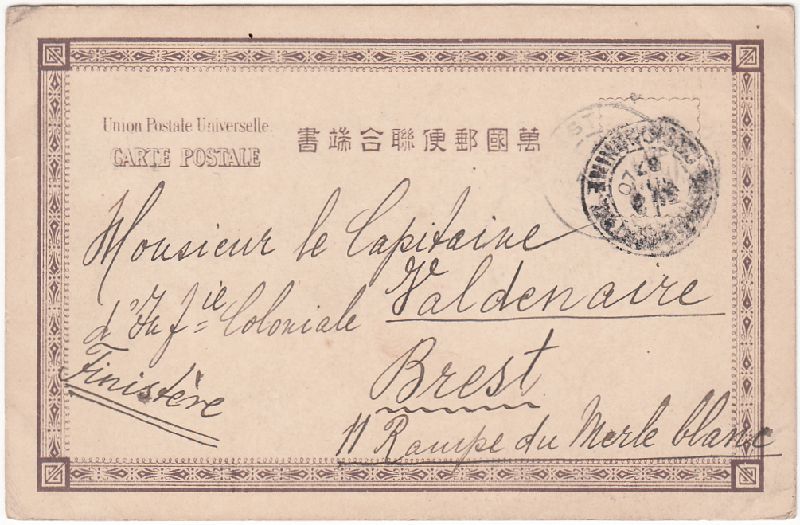 Union Postale Universelle.
CARTE POSTALE
書端合聯便郵國萬
Monsieur le Capitaine
d'Inf^ie Coloniale Valdenaire
Finistère
Brest
11 Rampe du Merle blanc